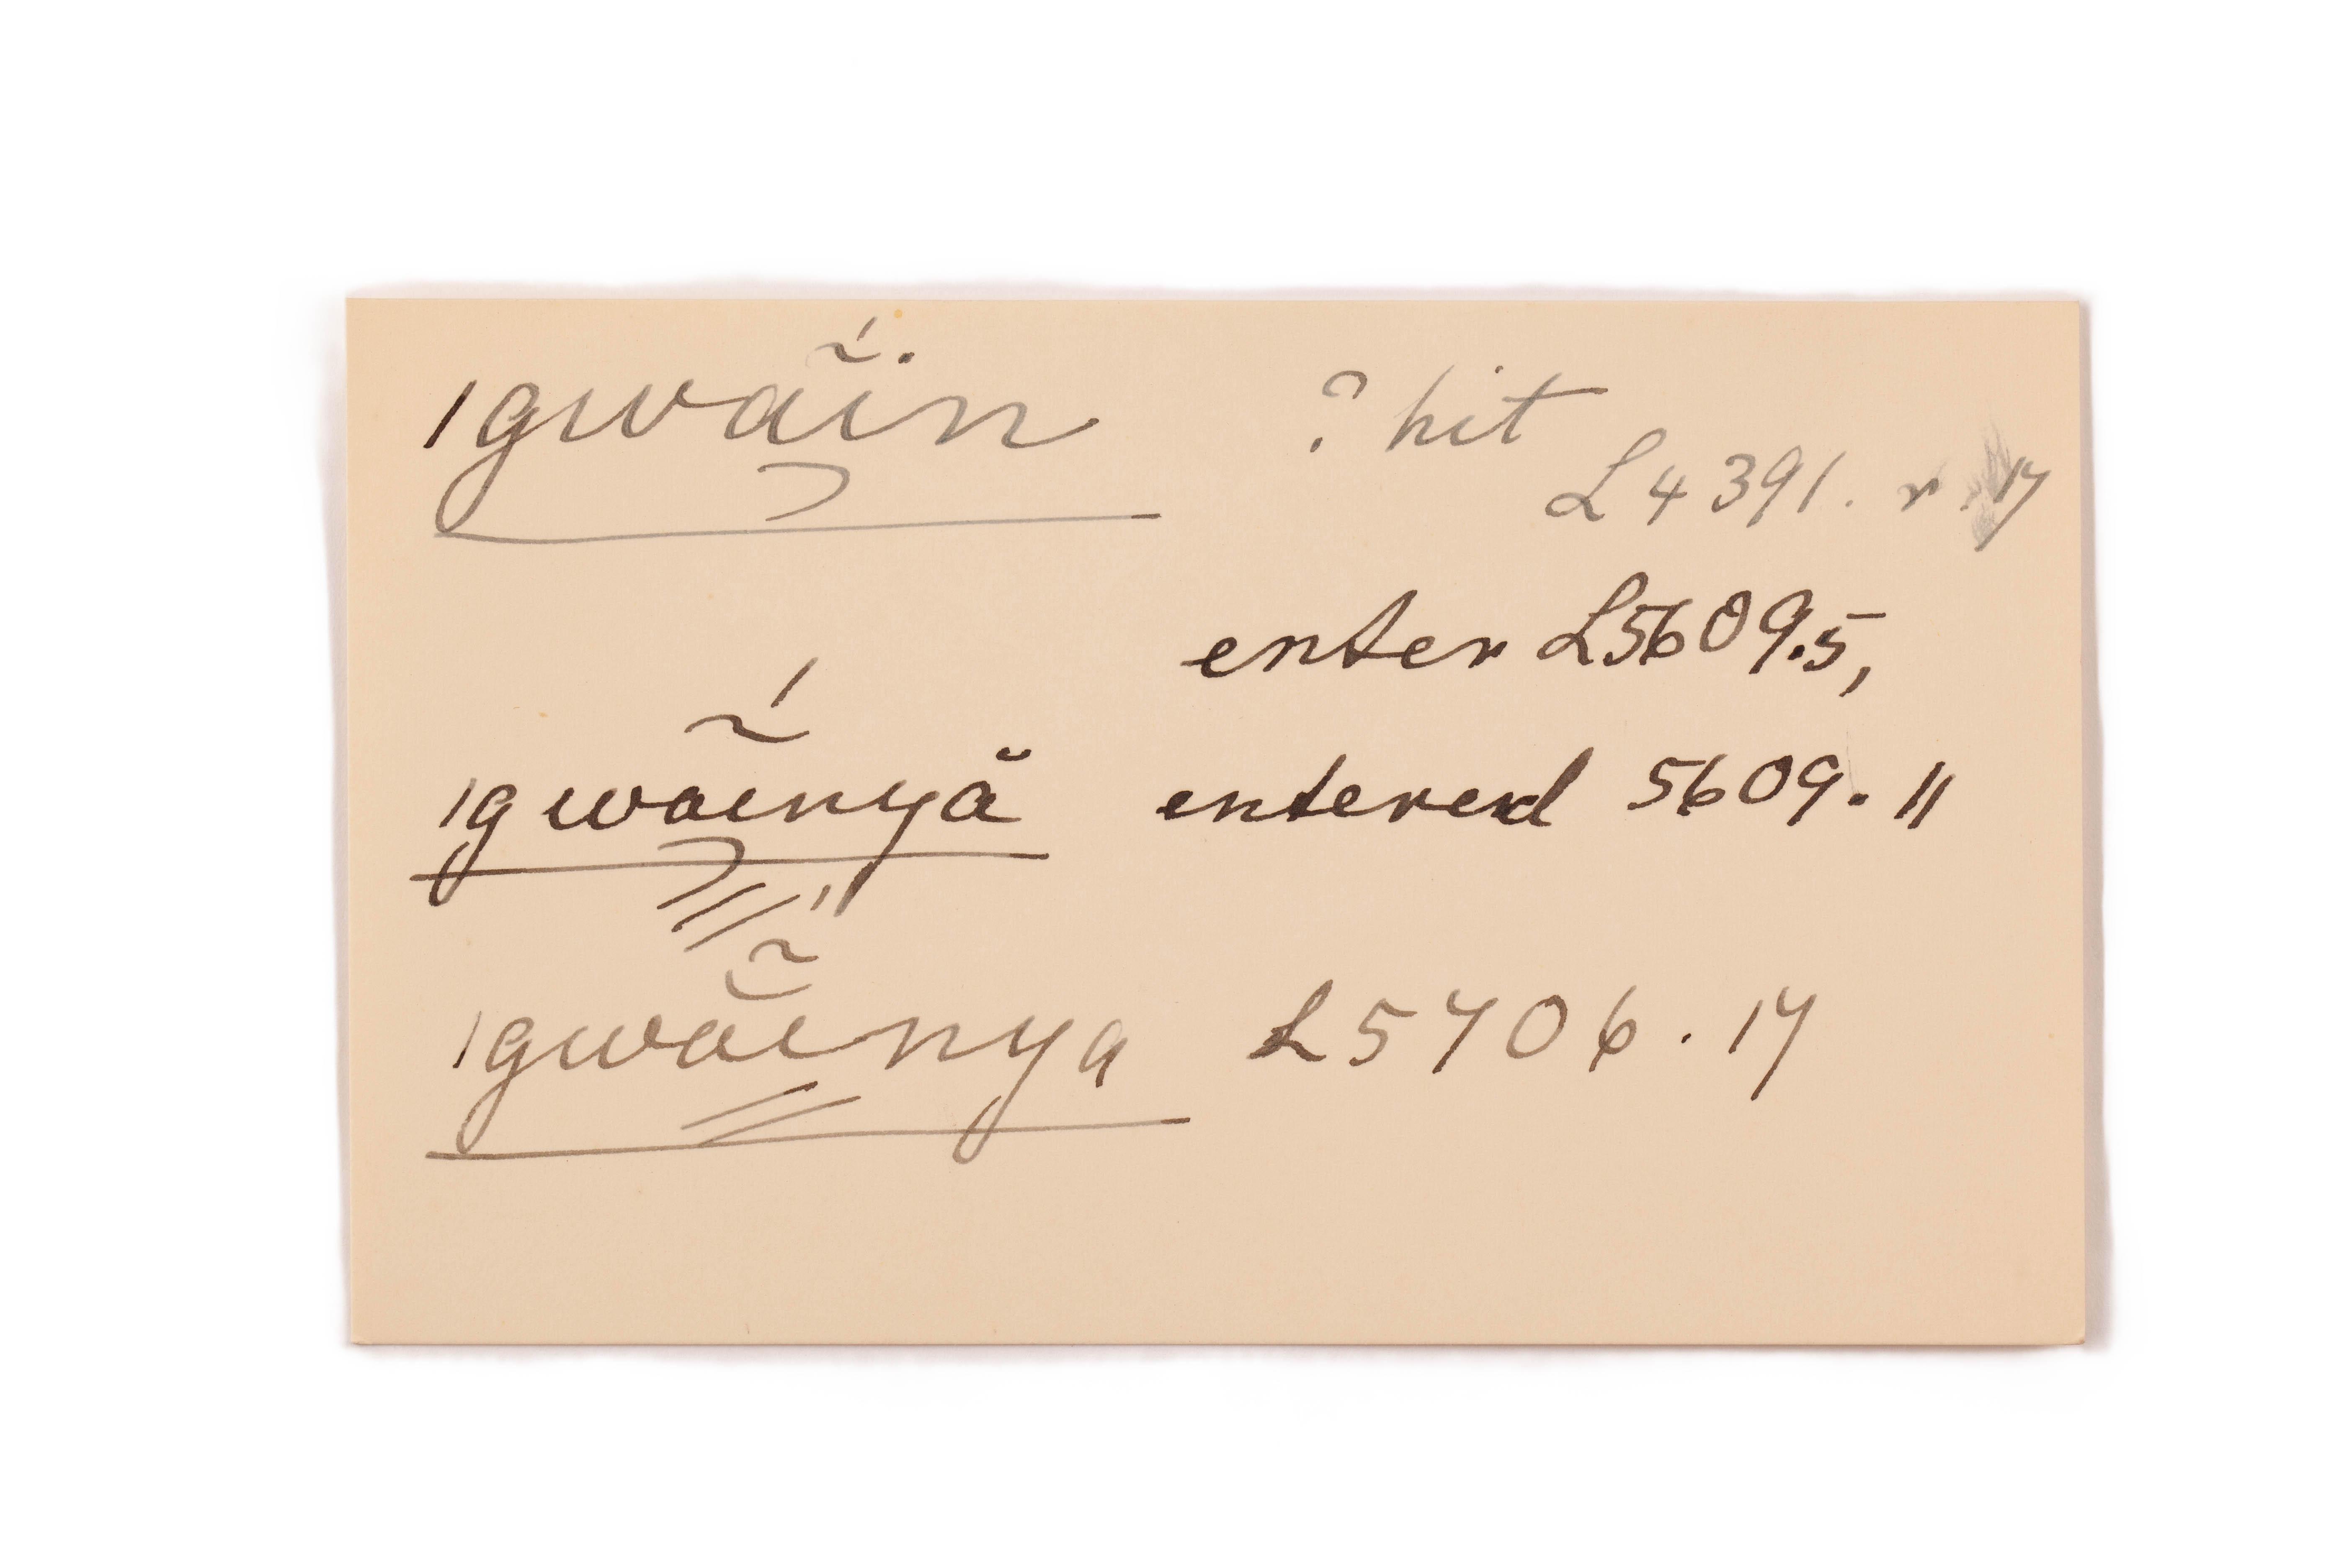 ıgwã́in ? hit
L4391. r. 17
enter L5609.5,
ıgwã́ınyă entered 5609. 11
ıgwã́ınya L5706. 17